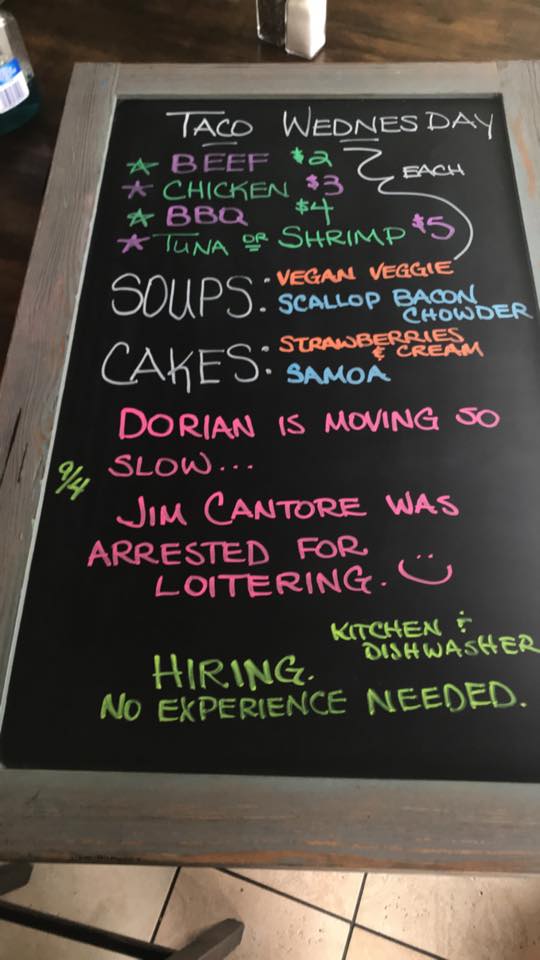 TACO WEDNESDAY
☆ BEEF $2
☆ CHICKEN $3
EACH
☆ BBQ $4
☆ TUNA OR SHRIMP $5
SOUPS: VEGAN VEGGIE
SCALLOP BACON
CHOWDER
CAKES: STRAWBERRIES
& CREAM
SAMOA
DORIAN IS MOVING SO
SLOW...
9/4
JIM CANTORE WAS
ARRESTED FOR
LOITERING. :)
KITCHEN &
DISHWASHER
HIRING.
NO EXPERIENCE NEEDED.